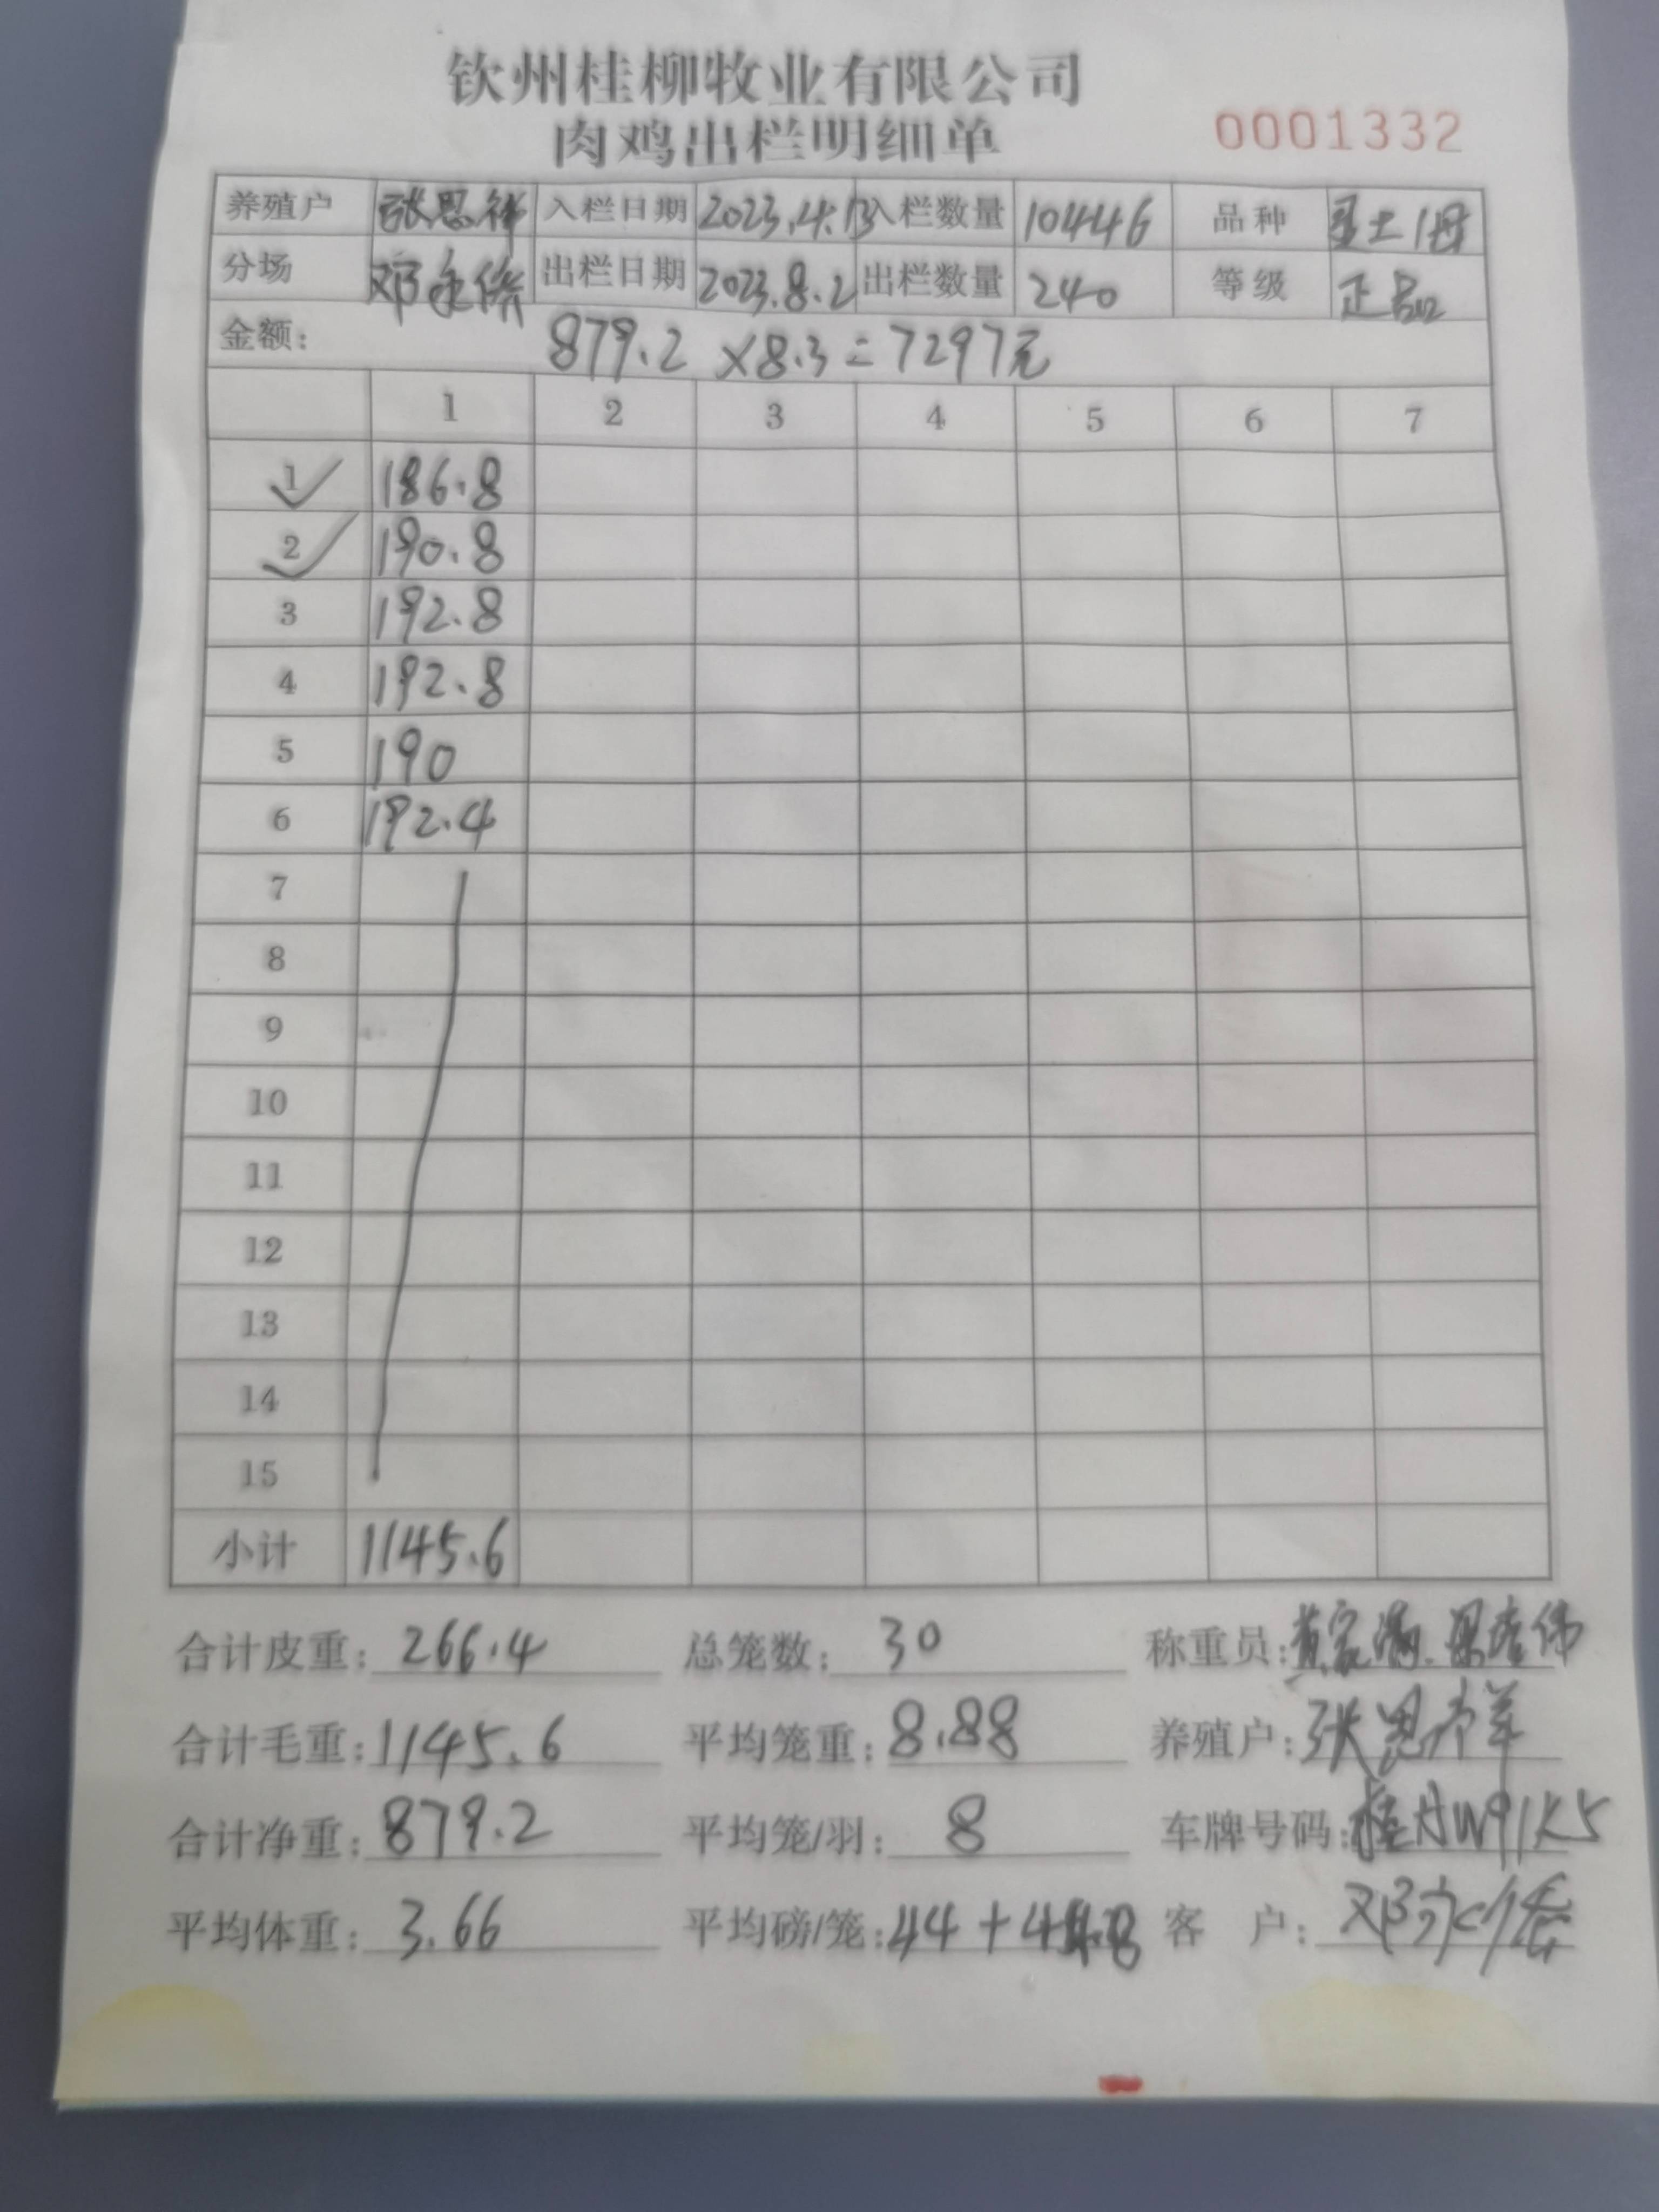 钦州桂柳牧业有限公司
肉鸡出栏明细单
0001332
养殖户 张思祥 入栏日期 2023.4.13 入栏数量 10446 品种 土1母
分场 邓永 出栏日期 2023.8.2 出栏数量 240 等级 正品
金额: 879.2 ×8.3=7297元
1 2 3 4 5 6 7
1 186.8
2 190.8
3 192.8
4 192.8
5 190
6 192.4
7
8
9
10
11
12
13
14
15
小计 1145.6
合计皮重: 266.4 总笼数: 30 称重员: 黄家满.梁春伟
合计毛重: 1145.6 平均笼重: 8.88 养殖户: 张思祥
合计净重: 879.2 平均笼/羽: 8 车牌号码: 桂AW91K5
平均体重: 3.66 平均磅/笼: 44+ 客 户: 邓永